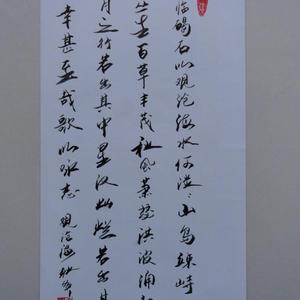 临碣石以观沧海水何澹澹山岛竦峙
丛生百草丰茂秋风萧瑟洪波涌
月之行若出其中星汉灿烂若出其
幸甚至哉歌以咏志 观沧海